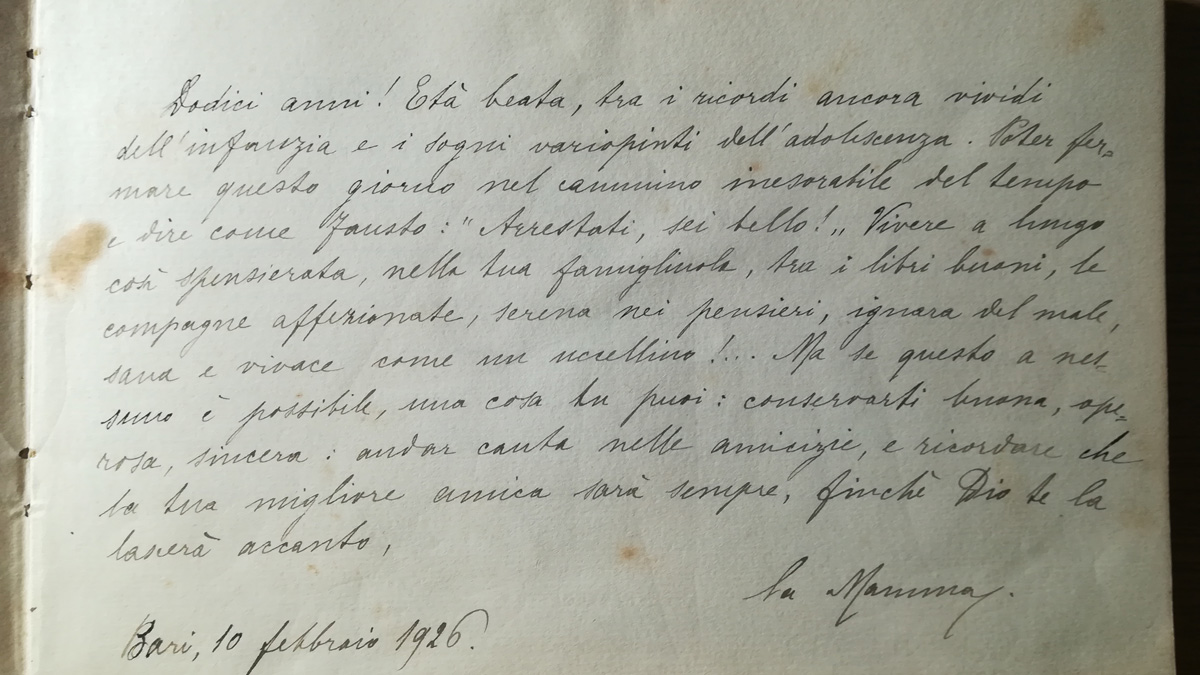 Dodici anni! Età beata, tra i ricordi ancora vividi
dell'infanzia e i sogni variopinti dell'adolescenza. Poter fer=
mare questo giorno nel cammino inesorabile del tempo
e dire come Fausto: "Arrestati, sei bello!„ Vivere a lungo
così spensierata, nella tua famigliuola, tra i libri buoni, le
compagne affezionate, serena nei pensieri, ignara del male,
sana e vivace come un uccellino!... Ma se questo a nes=
suno è possibile, una cosa tu puoi: conservarti buona, ope=
rosa, sincera: andar cauta nelle amicizie, e ricordare che
la tua migliore amica sarà sempre, finchè Dio te la
lascerà accanto,
la Mamma.
Bari, 10 febbraio 1926.